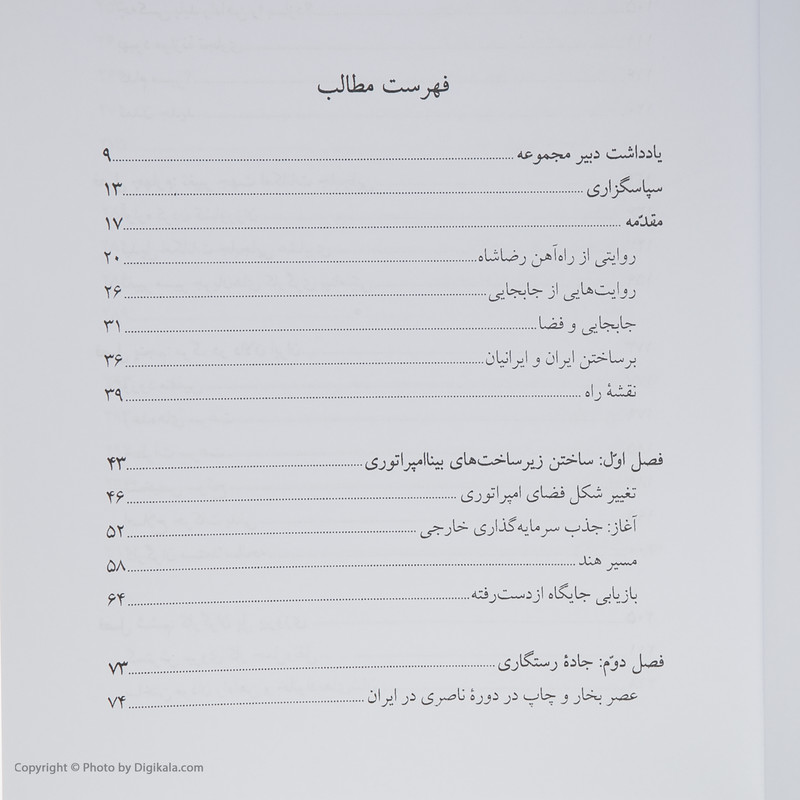 فهرست مطالب
یادداشت دبیر مجموعه ۹
سپاسگزاری ۱۳
مقدّمه ۱۷
روایتی از راه‌آهن رضاشاه ۲۰
روایت‌هایی از جابجایی ۲۶
جابجایی و فضا ۳۱
برساختن ایران و ایرانیان ۳۶
نقشهٔ راه ۳۹
فصل اوّل: ساختن زیرساخت‌های بیناامپراتوری ۴۳
تغییر شکل فضای امپراتوری ۴۶
آغاز: جذب سرمایه‌گذاری خارجی ۵۲
مسیر هند ۵۸
بازیابی جایگاه ازدست‌رفته ۶۴
فصل دوّم: جادهٔ رستگاری ۷۳
عصر بخار و چاپ در دورهٔ ناصری در ایران ۷۴
Copyright © Photo by Digikala.com